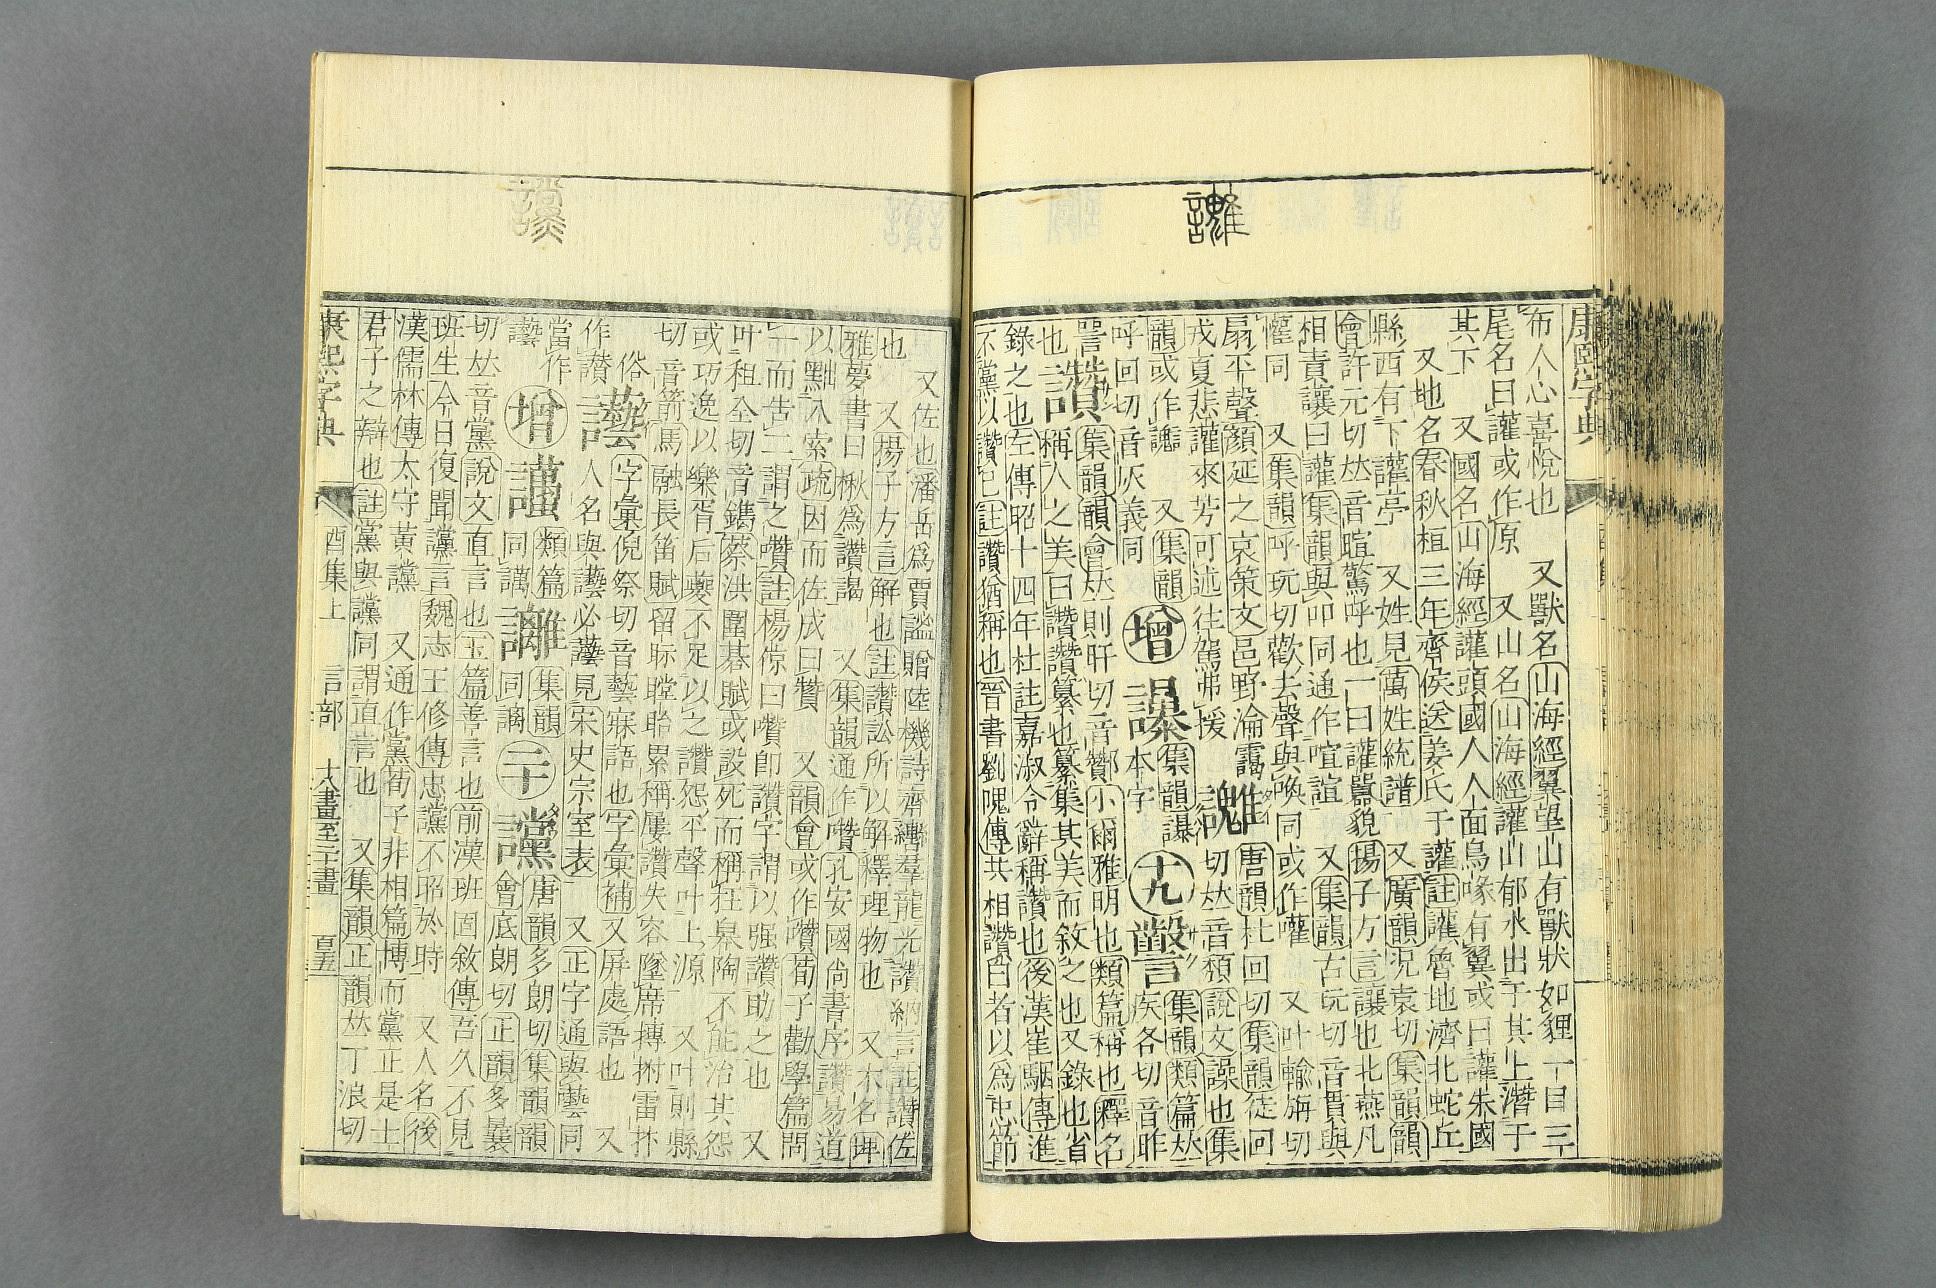 讙
康熙字典
布人心喜悅也　又獸名山海經翼望山有獸狀如貍一目三
尾名曰讙或作原　又山名山海經讙山郁水出于其上潛于
其下　又國名山海經讙頭國人人面鳥喙有翼或曰讙朱國
又地名春秋桓三年齊侯送姜氏于讙註讙魯地濟北蛇丘
縣西有下讙亭　又姓見萬姓統譜　又廣韻況袁切集韻韻
會許元切𠀤音暄驚呼也一曰讙囂貌揚子方言讓也北燕凡
相責讓曰讙集韻與吅同通作喧諠　又集韻古玩切音貫與
懽同　又集韻呼玩切歡去聲與喚同或作嚾　又叶輸旃切
扇平聲顏延之哀策文邑野淪靄
戎夏悲讙來芳可述往駕弗援
唐韻杜回切集韻徒回
切𠀤音頹說文譟也集
韻或作　又集韻
呼回切音灰義同
增
集韻
本字
十九
集韻類篇𠀤
疾各切音昨
詈
讚
集韻韻會𠀤則旰切音酇小爾雅明也類篇稱也釋名
也稱人之美曰讚讚纂也纂集其美而敘之也又錄也省
錄之也左傳昭十四年杜註嘉淑令辭稱讚也後漢崔駰傳進
不黨以讚己註讚猶稱也晉書劉隗傳共相讚白者以為忠節
讜
又佐也潘岳為賈謐贈陸機詩齊轡羣龍光讚納言註讚佐
也　又揚子方言解也註讚訟所以解釋理物也　又木名埤
雅夢書曰楸為讚謁　又集韻通作囋孔安國尚書序讚易道
以黜八索疏因而佐成曰贊　又韻會或作讚荀子勸學篇問
一而告二謂之囋註楊倞曰囋即讚字謂以强讚助之也　又
叶租全切音鐫蔡洪圍棊賦或設死而稱枉臯陶不能治其怨
或巧逸以樂胥后夔不足以之讚怨平聲叶上源　又叶則縣
切音箭馬融長笛賦留眎瞠眙累稱屢讚失容墜席搏拊雷抃
俗
作讃
字彙倪祭切音藝寐語也字彙補又屏處語也　又
人名與　必　見宋史宗室表　又正字通與　同
當作
增
類篇
同
集韻
同謧
二十
讜
唐韻多朗切集韻韻
會底朗切正韻多曩
切𠀤音黨說文直言也玉篇善言也前漢班固敘傳吾久不見
班生今日復聞讜言魏志王修傳忠讜不昭於時　又人名後
漢儒林傳太守黃讜　又通作黨荀子非相篇博而黨正是士
君子之辯也註黨與讜同謂直言也　又集韻正韻𠀤丁浪切
康熙字典　酉集上　言部　十八畫至二十畫　百五